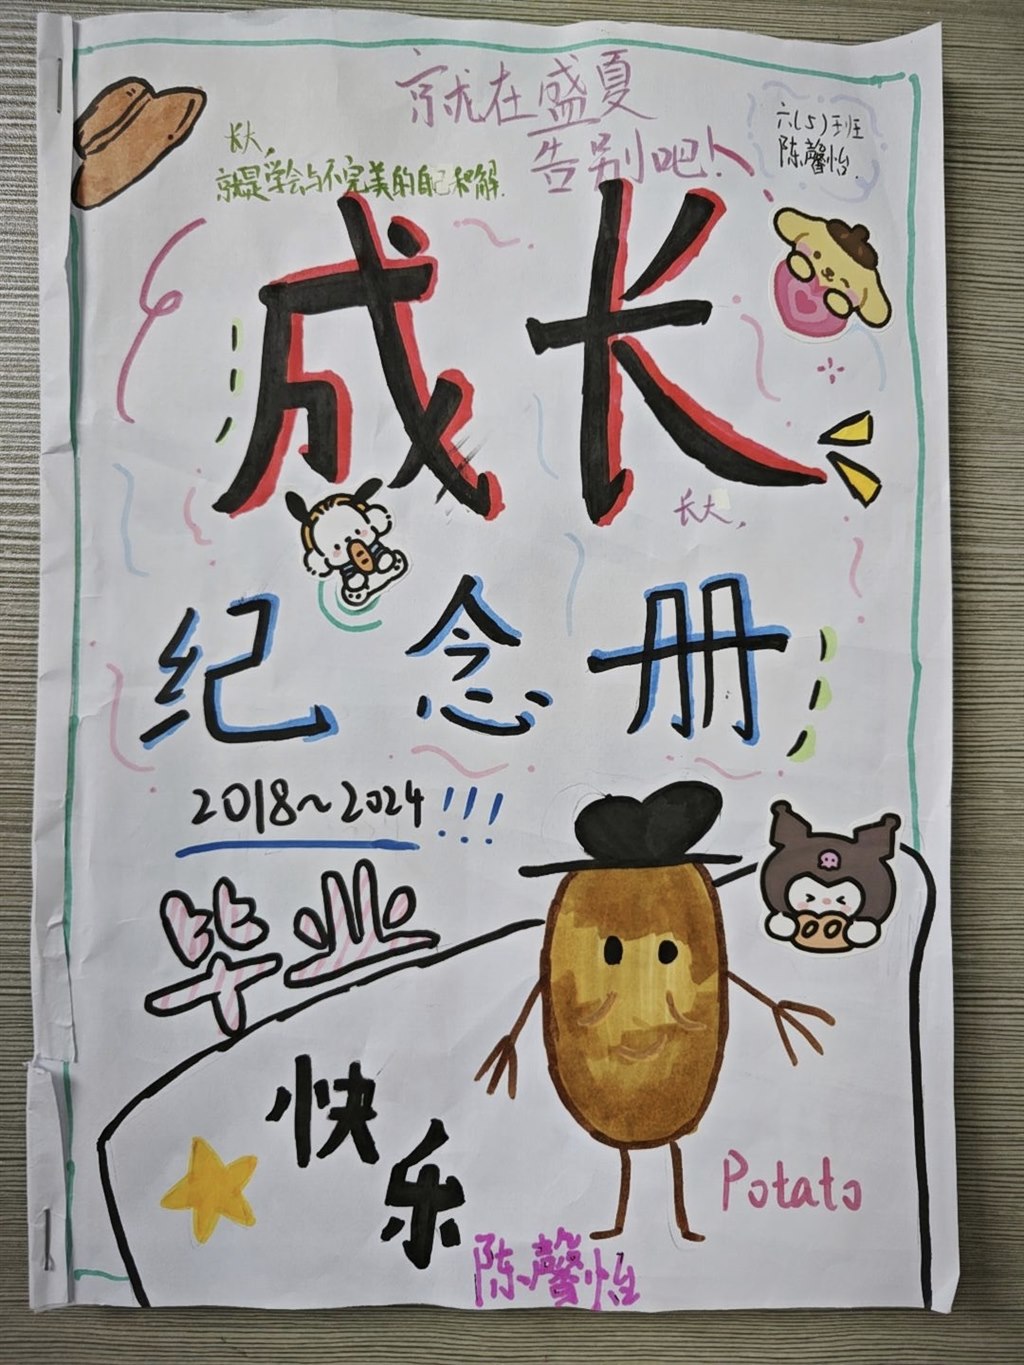 就在盛夏
告别吧！
六(5)班
陈馨怡.
长大，
就是学会与不完美的自己和解.
成长
长大，
纪念册
2018~2024!!!
毕业
快
乐
Potato
陈馨怡